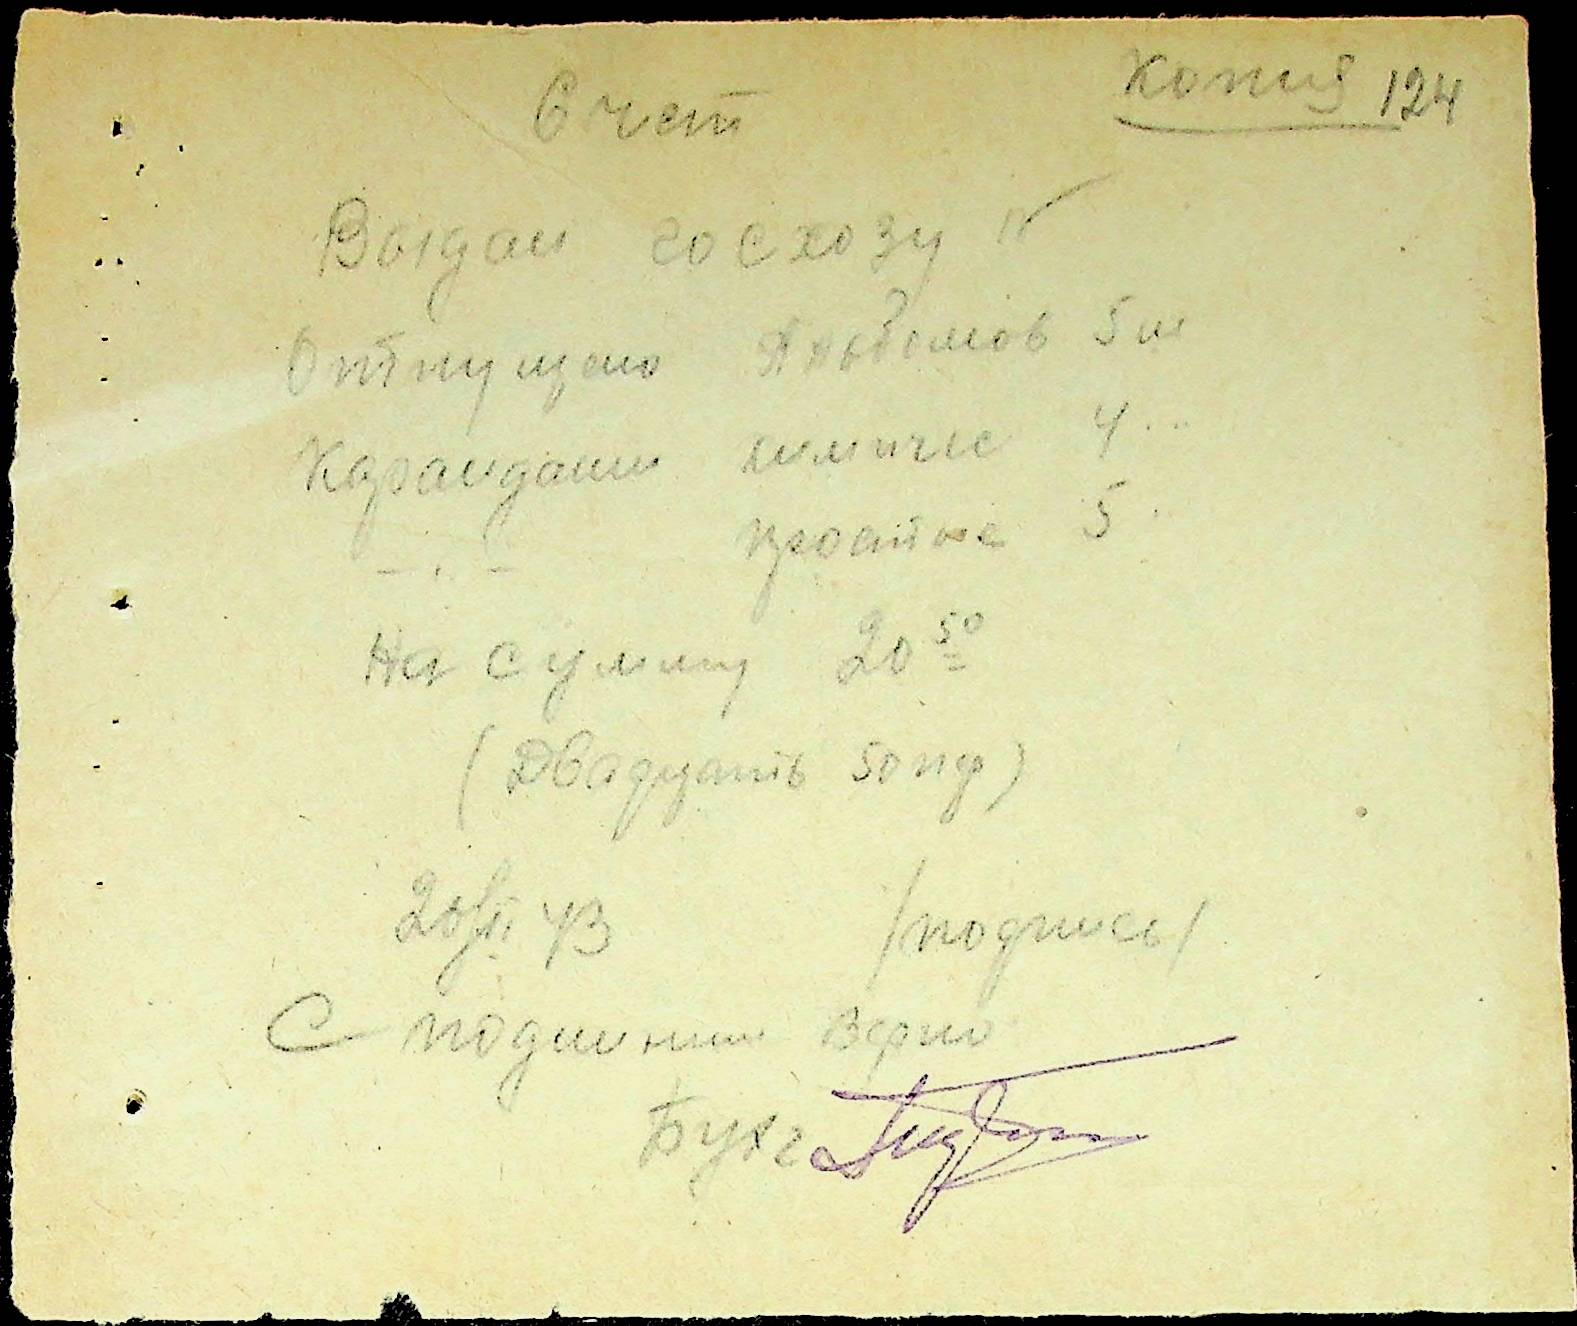 Копия 124
Счет
Выдан госхозу
Отпущено Альбомов 5 ш
Карандаши химичес 4 "
— " — простые 5 "
На сумму 20 50
(Двадцать 50 пф)
43 /подпись/
С подлинным верно
Бухг